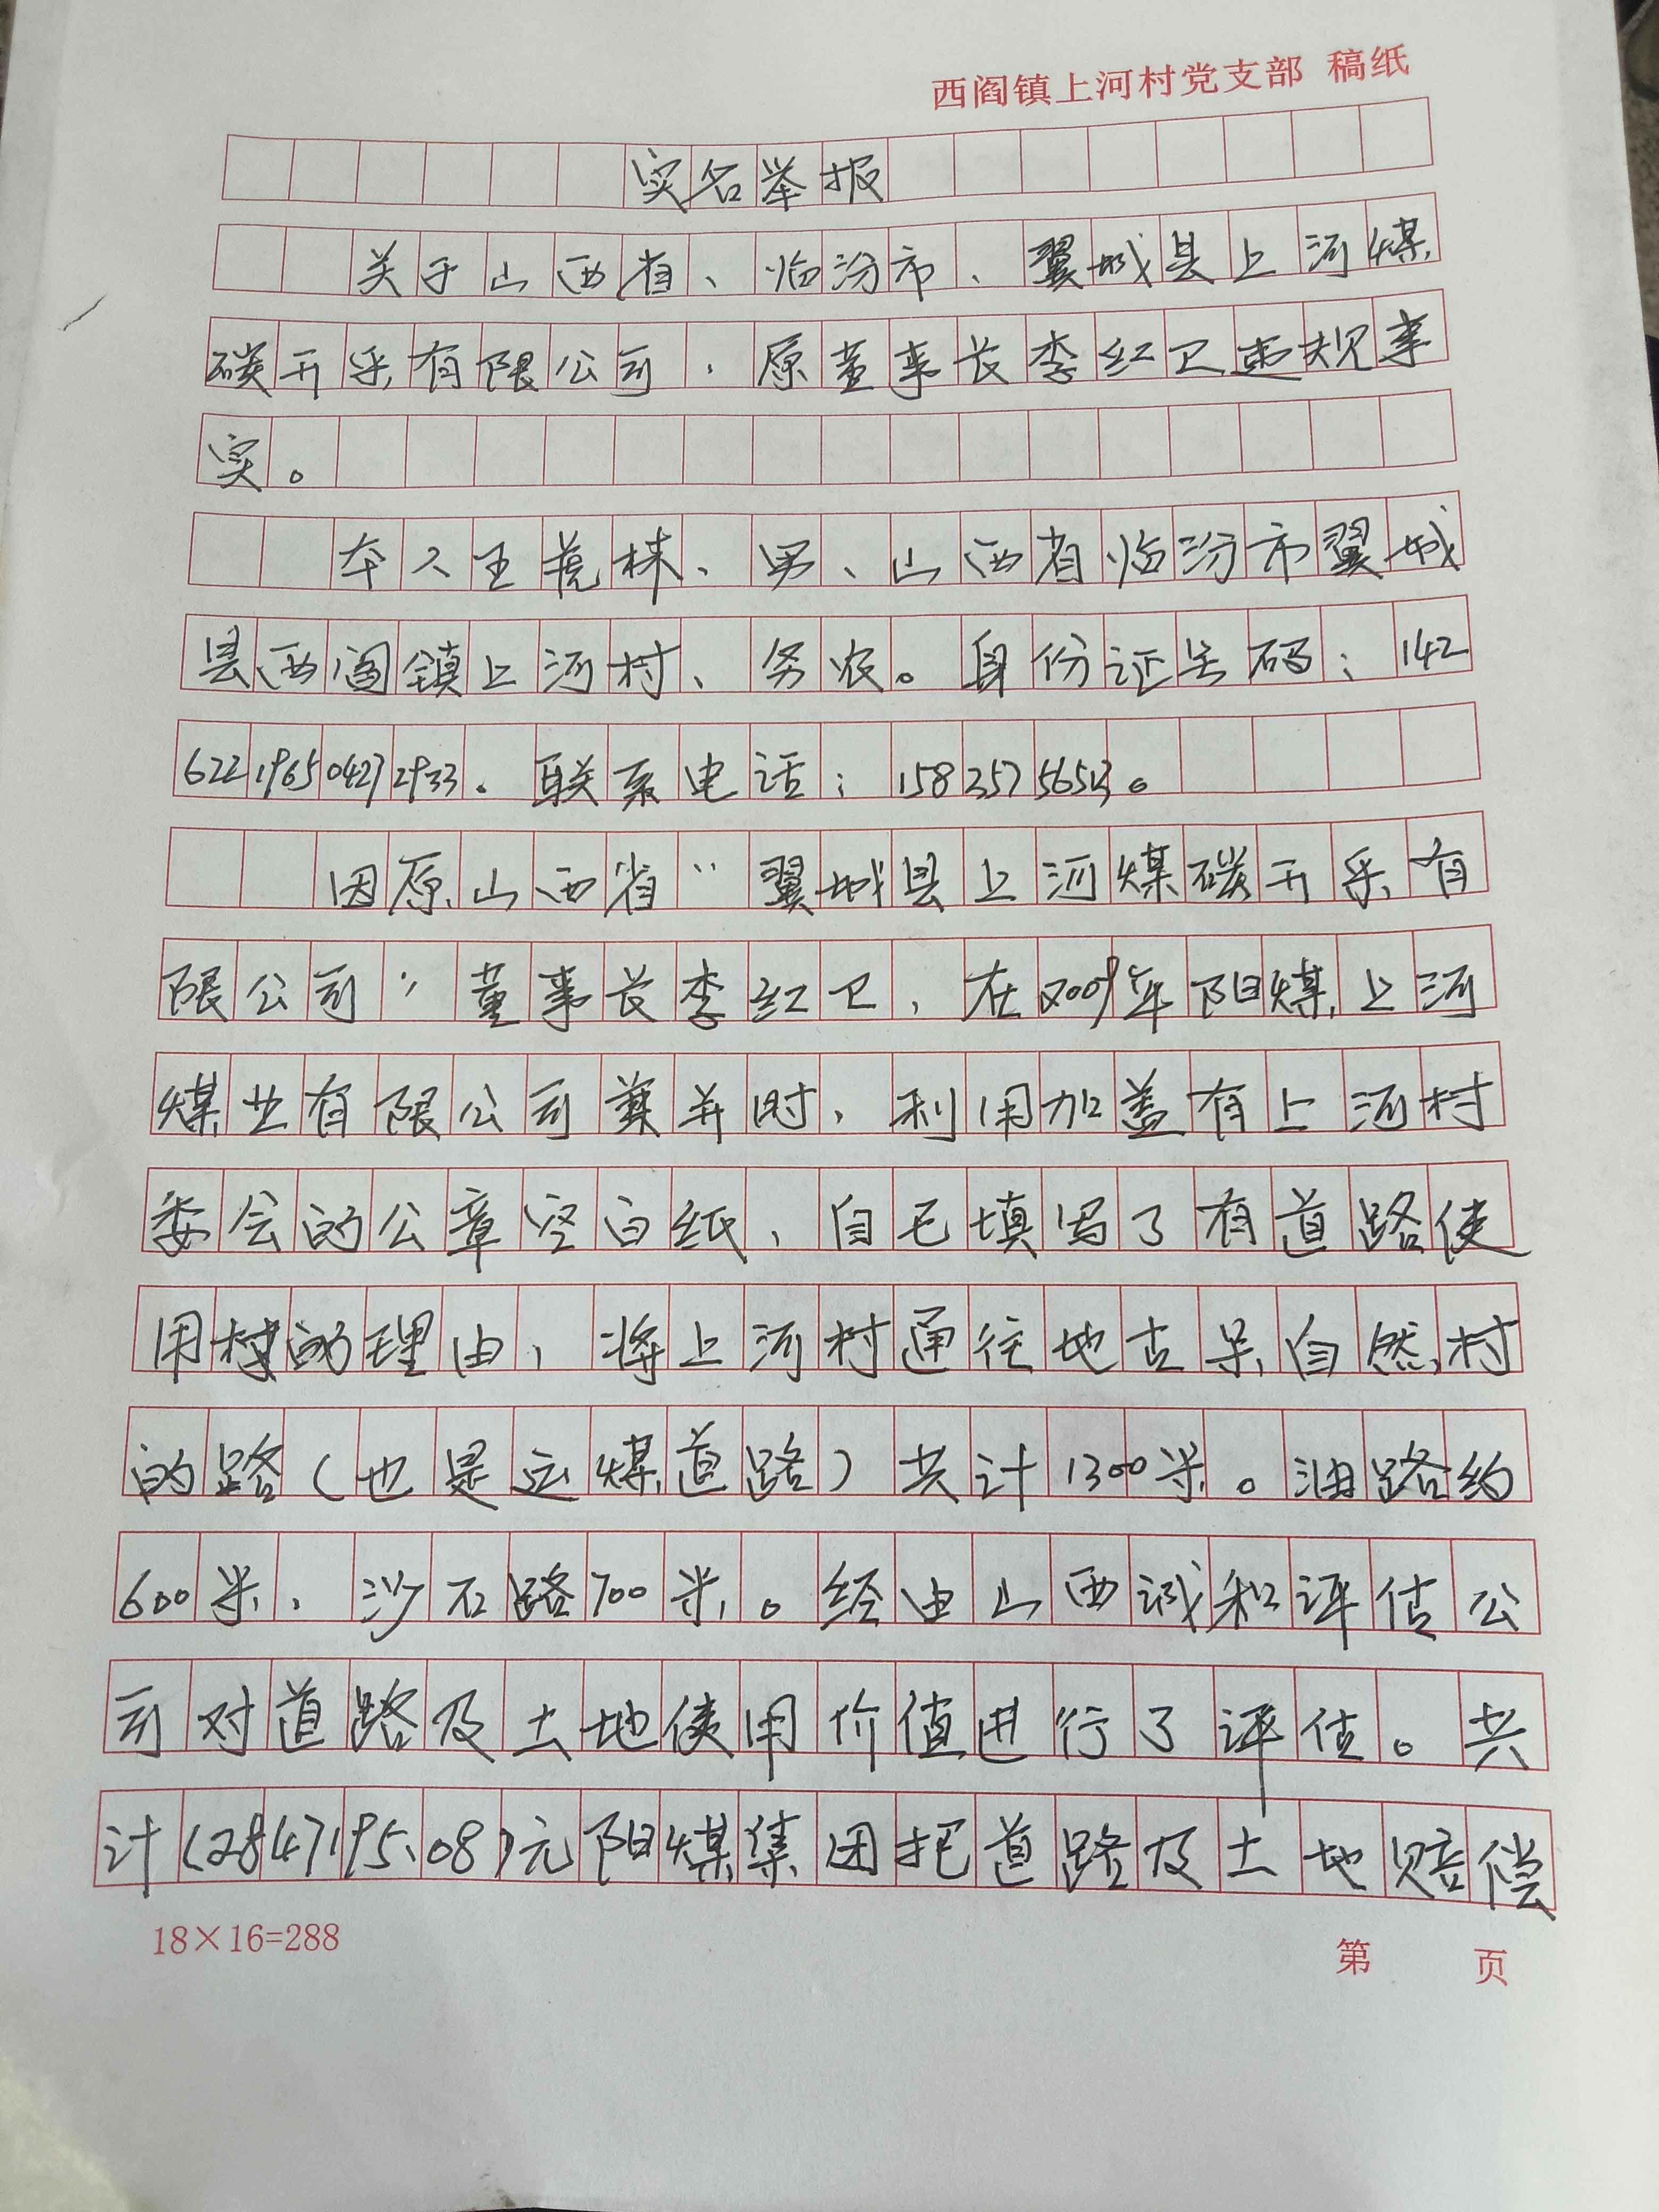 西阎镇上河村党支部 稿纸
实名举报
关于山西省、临汾市、翼城县上河煤
碳开采有限公司,原董事长李红卫违规事
实。
本人王 栋、男、山西省临汾市翼城
县西阎镇上河村、务农。身份证号码:142
622196504272933.联系电话:158357
因原山西省“翼城县上河煤碳开采有
限公司”董事长李红卫,在2009年阳煤上河
煤业有限公司兼并时,利用加盖有上河村
委会的公章空白纸,自己填写了有道路使
用 的理由,将上河村通往地古 自然村
的路(也是运煤道路)共计1300米。油路约
600米,沙石路700米。经由山西诚和评估公
司对道路及土地使用价值进行了评估。共
计(2847195.08)元阳煤集团把道路及土地赔偿
18×16=288
第 页